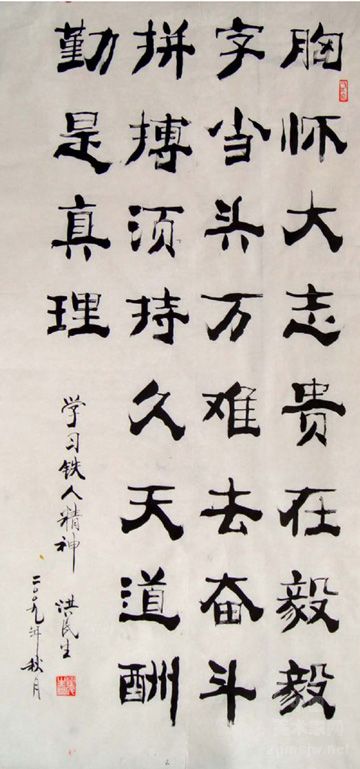 胸怀大志贵在毅毅
字当头万难去奋斗
拼搏须持久天道酬
勤是真理
学习铁人精神
二〇〇九年秋月
洪民生